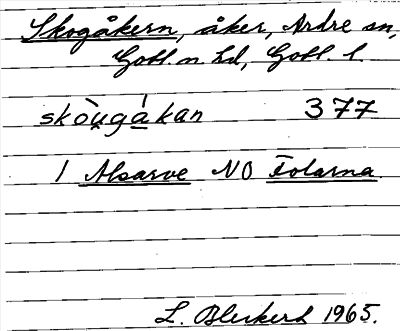 Skogåkern, åker, Ardre sn,
Gotl. n. hd, Gotl. l.
skòu̯gá̱kan 377
1 Alsarve NO Folarna.
L. Blerkert 1965.